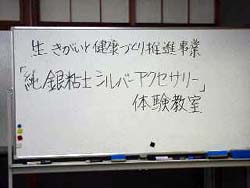 生きがいと健康づくり推進事業
「純銀粘土シルバーアクセサリー」
体験教室